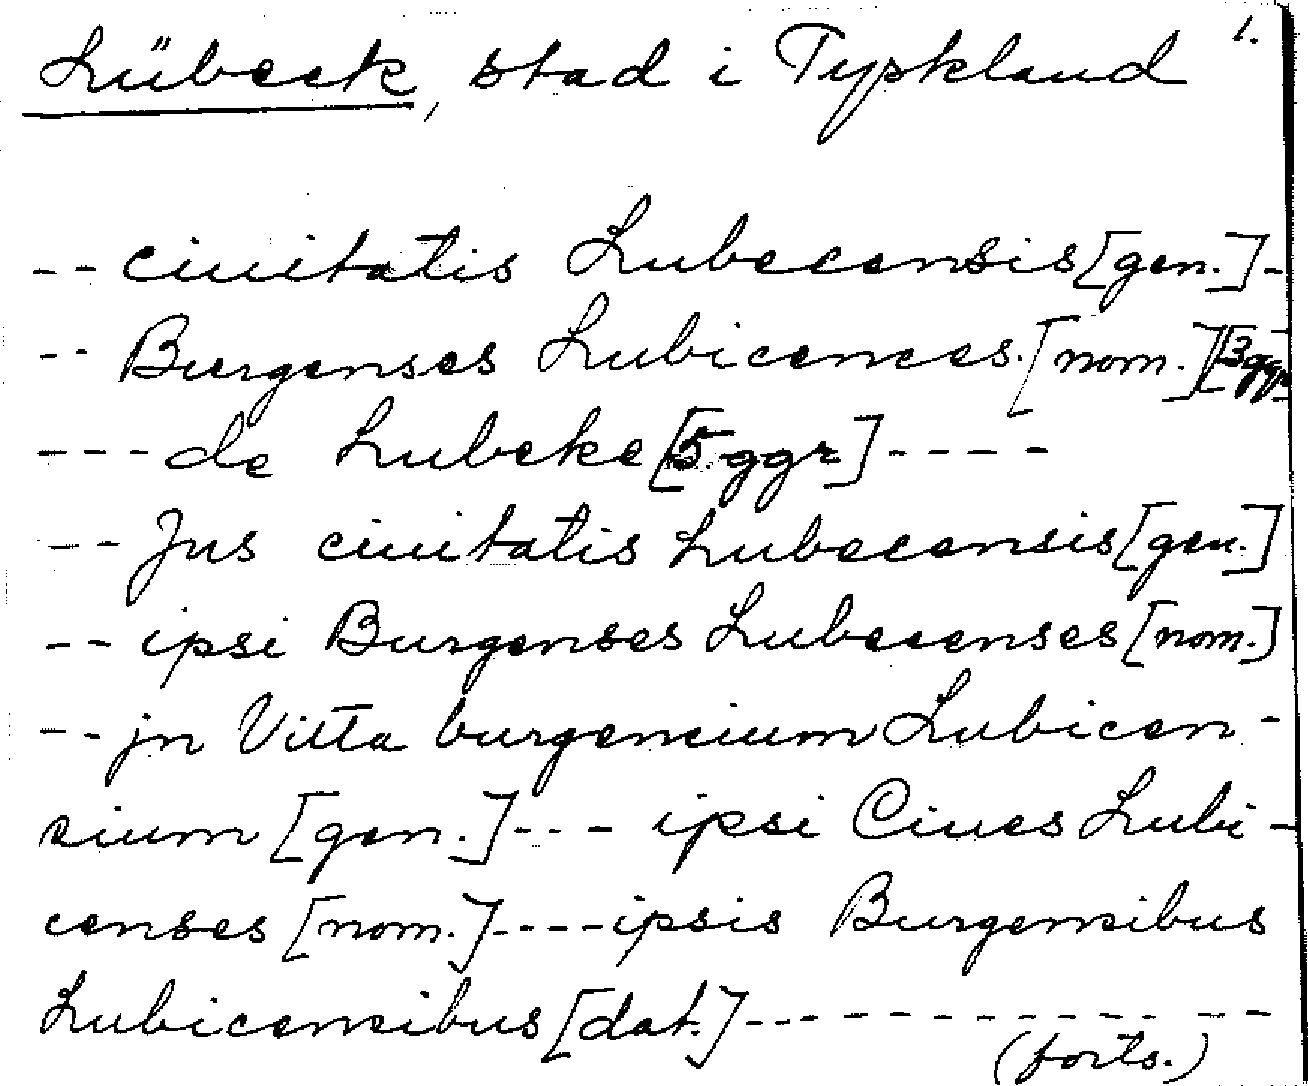 Lübeck, stad i Tyskland 1.
-- ciuitatis Lubecensis [gen.] -
-- Burgenses Lubicences. [nom.] [3 ggr
--- de Lubeke [5 ggr] ----
-- Jus ciuitatis Lubecensis [gen.]
-- ipsi Burgenses Lubecenses [nom.]
-- jn Vitta burgencium Lubicen-
sium [gen.] ---- ipsi Ciues Lubi-
censes [nom.] ---- ipsis Burgensibus
Lubicensibus [dat.] -------------
(forts.)